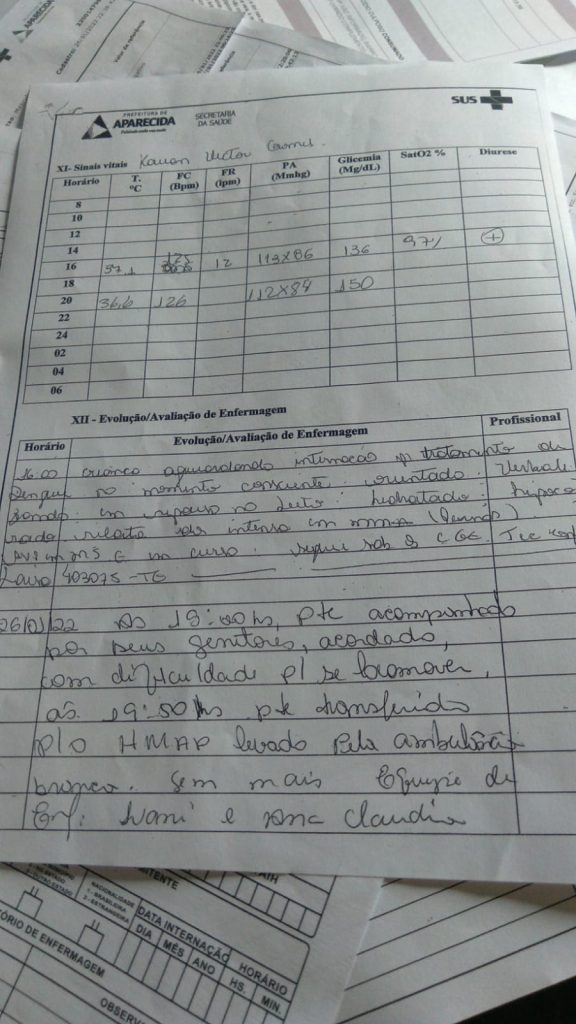 PREFEITURA DE
APARECIDA
SECRETARIA
DA SAÚDE
SUS
XI- Sinais vitais Kauan Victor
Horário T. ºC FC (Bpm) FR (ipm) PA (Mmhg) Glicemia (Mg/dL) SatO2 % Diurese
8
10
12
14
16 37,1 12 113X86 136 97% +
18
20 36,6 126 112X84 150
22
24
02
04
06
XII - Evolução/Avaliação de Enfermagem
Horário Evolução/Avaliação de Enfermagem Profissional
16:00 criança aguardando internação p/ tratamento de
Dengue no momento consciente, orientado. Verbali
zando em repouso no leito. hidratado. hipoco
rado relata dor intensa em
AVP em MSE em curso. segue sob o CGE. Tec enf
403075-TE
26/01/22 Às 19:00hs, pte acompanhado
por seus genitores, acordado,
com dificuldade p/ se locomover,
às 19:50hs pte transferido
p/o HMAP levado pela ambulância
branca. Sem mais Equipe de
Enf: Ivani e Ana Claudia
AIH
NACIONALIDADE
1 - BRASILEIRA
2 - ESTRANGEIRA
DATA INTERNAÇÃO HORÁRIO
DIA MÊS ANO HS. MIN.
ÓRIO DE ENFERMAGEM
OBSERV